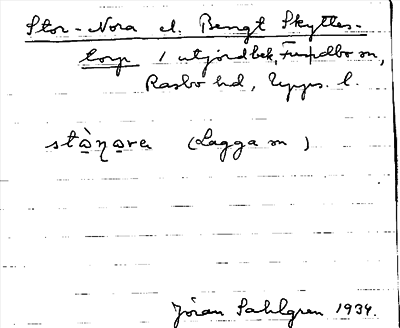 Stor-Nora el. Bengt Skyttes-
torp / utjordbek, Funbo sn,
Rasbo hd, Upps. l.
stà̱ŋa̱ra (Lagga sn)
Jöran Sahlgren 1934.